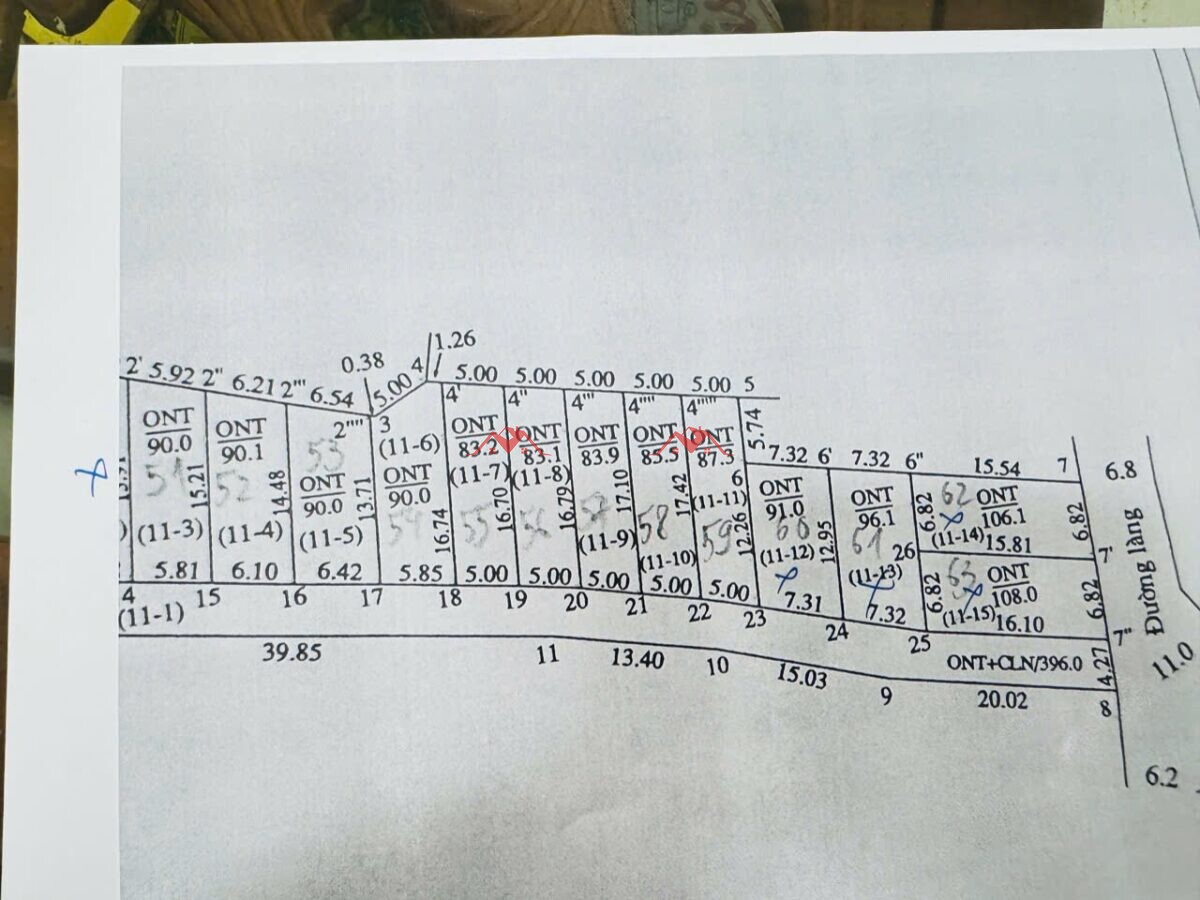 1.26
0.38
2' 5.92 2" 6.21 2''' 6.54 5.00 4 5.00 5.00 5.00 5.00 5.00 5
2'''' 3 4' 4" 4''' 4'''' 4''''' 5.74
ONT ONT ONT ONT ONT ONT ONT ONT ONT
90.0 90.1 90.0 90.0 83.2 83.1 83.9 85.5 87.3
7.32 6' 7.32 6" 15.54 7 6.8
(11-6) (11-7) (11-8) 6
15.21 14.48 13.71 16.74 16.70 16.79 17.10 17.42 12.26 12.95
52 53 54 55 56 57 58 59 60 61 62 63
(11-3) (11-4) (11-5) (11-9) (11-10) (11-11)
ONT ONT ONT
91.0 96.1 106.1
(11-12) (11-13) (11-14)
6.82 15.81 6.82
26 7'
ONT
108.0
6.82 (11-15) 16.10 6.82
5.81 6.10 6.42 5.85 5.00 5.00 5.00 5.00 5.00 7.31 7.32
4 15 16 17 18 19 20 21 22 23 24 25 7"
(11-1)
ONT+CLN/396.0 4.27
39.85 11 13.40 10 15.03 9 20.02 8
Đường làng
11.0
6.2